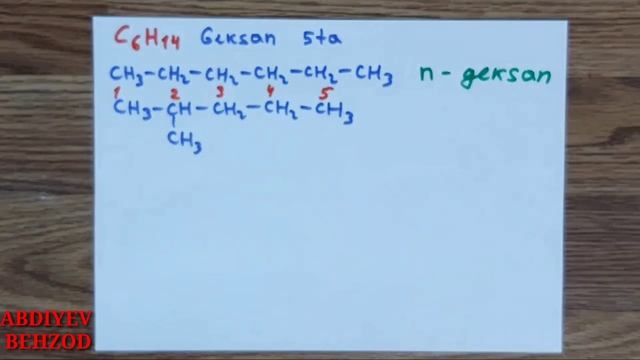 C₆H₁₄ Geksan 5ta
CH₃-CH₂-CH₂-CH₂-CH₂-CH₃ n-geksan
1 2 3 4 5
CH₃-CH-CH₂-CH₂-CH₃
CH₃
ABDIYEV
BEHZOD